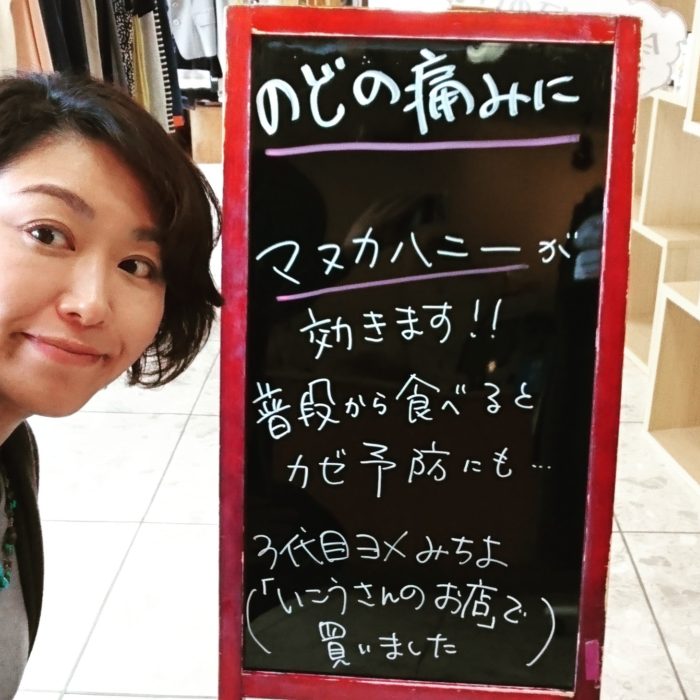 のどの痛みに
マヌカハニーが
効きます!!
普段から食べると
カゼ予防にも…
3代目ヨメみちよ
(「いこうさんのお店」で
買いました)